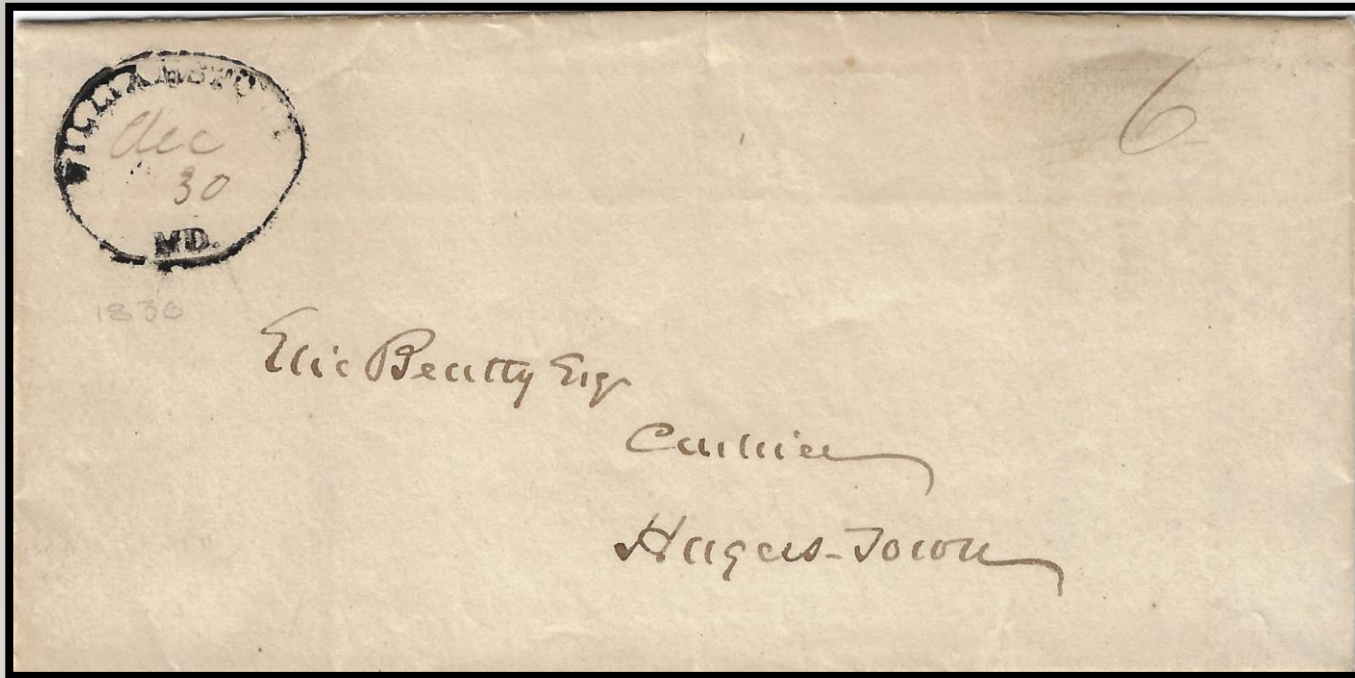 WILLIAMSPORT
Dec
30
MD.
6
Elie Beatty Esqr
Cashier
Hagers-Town